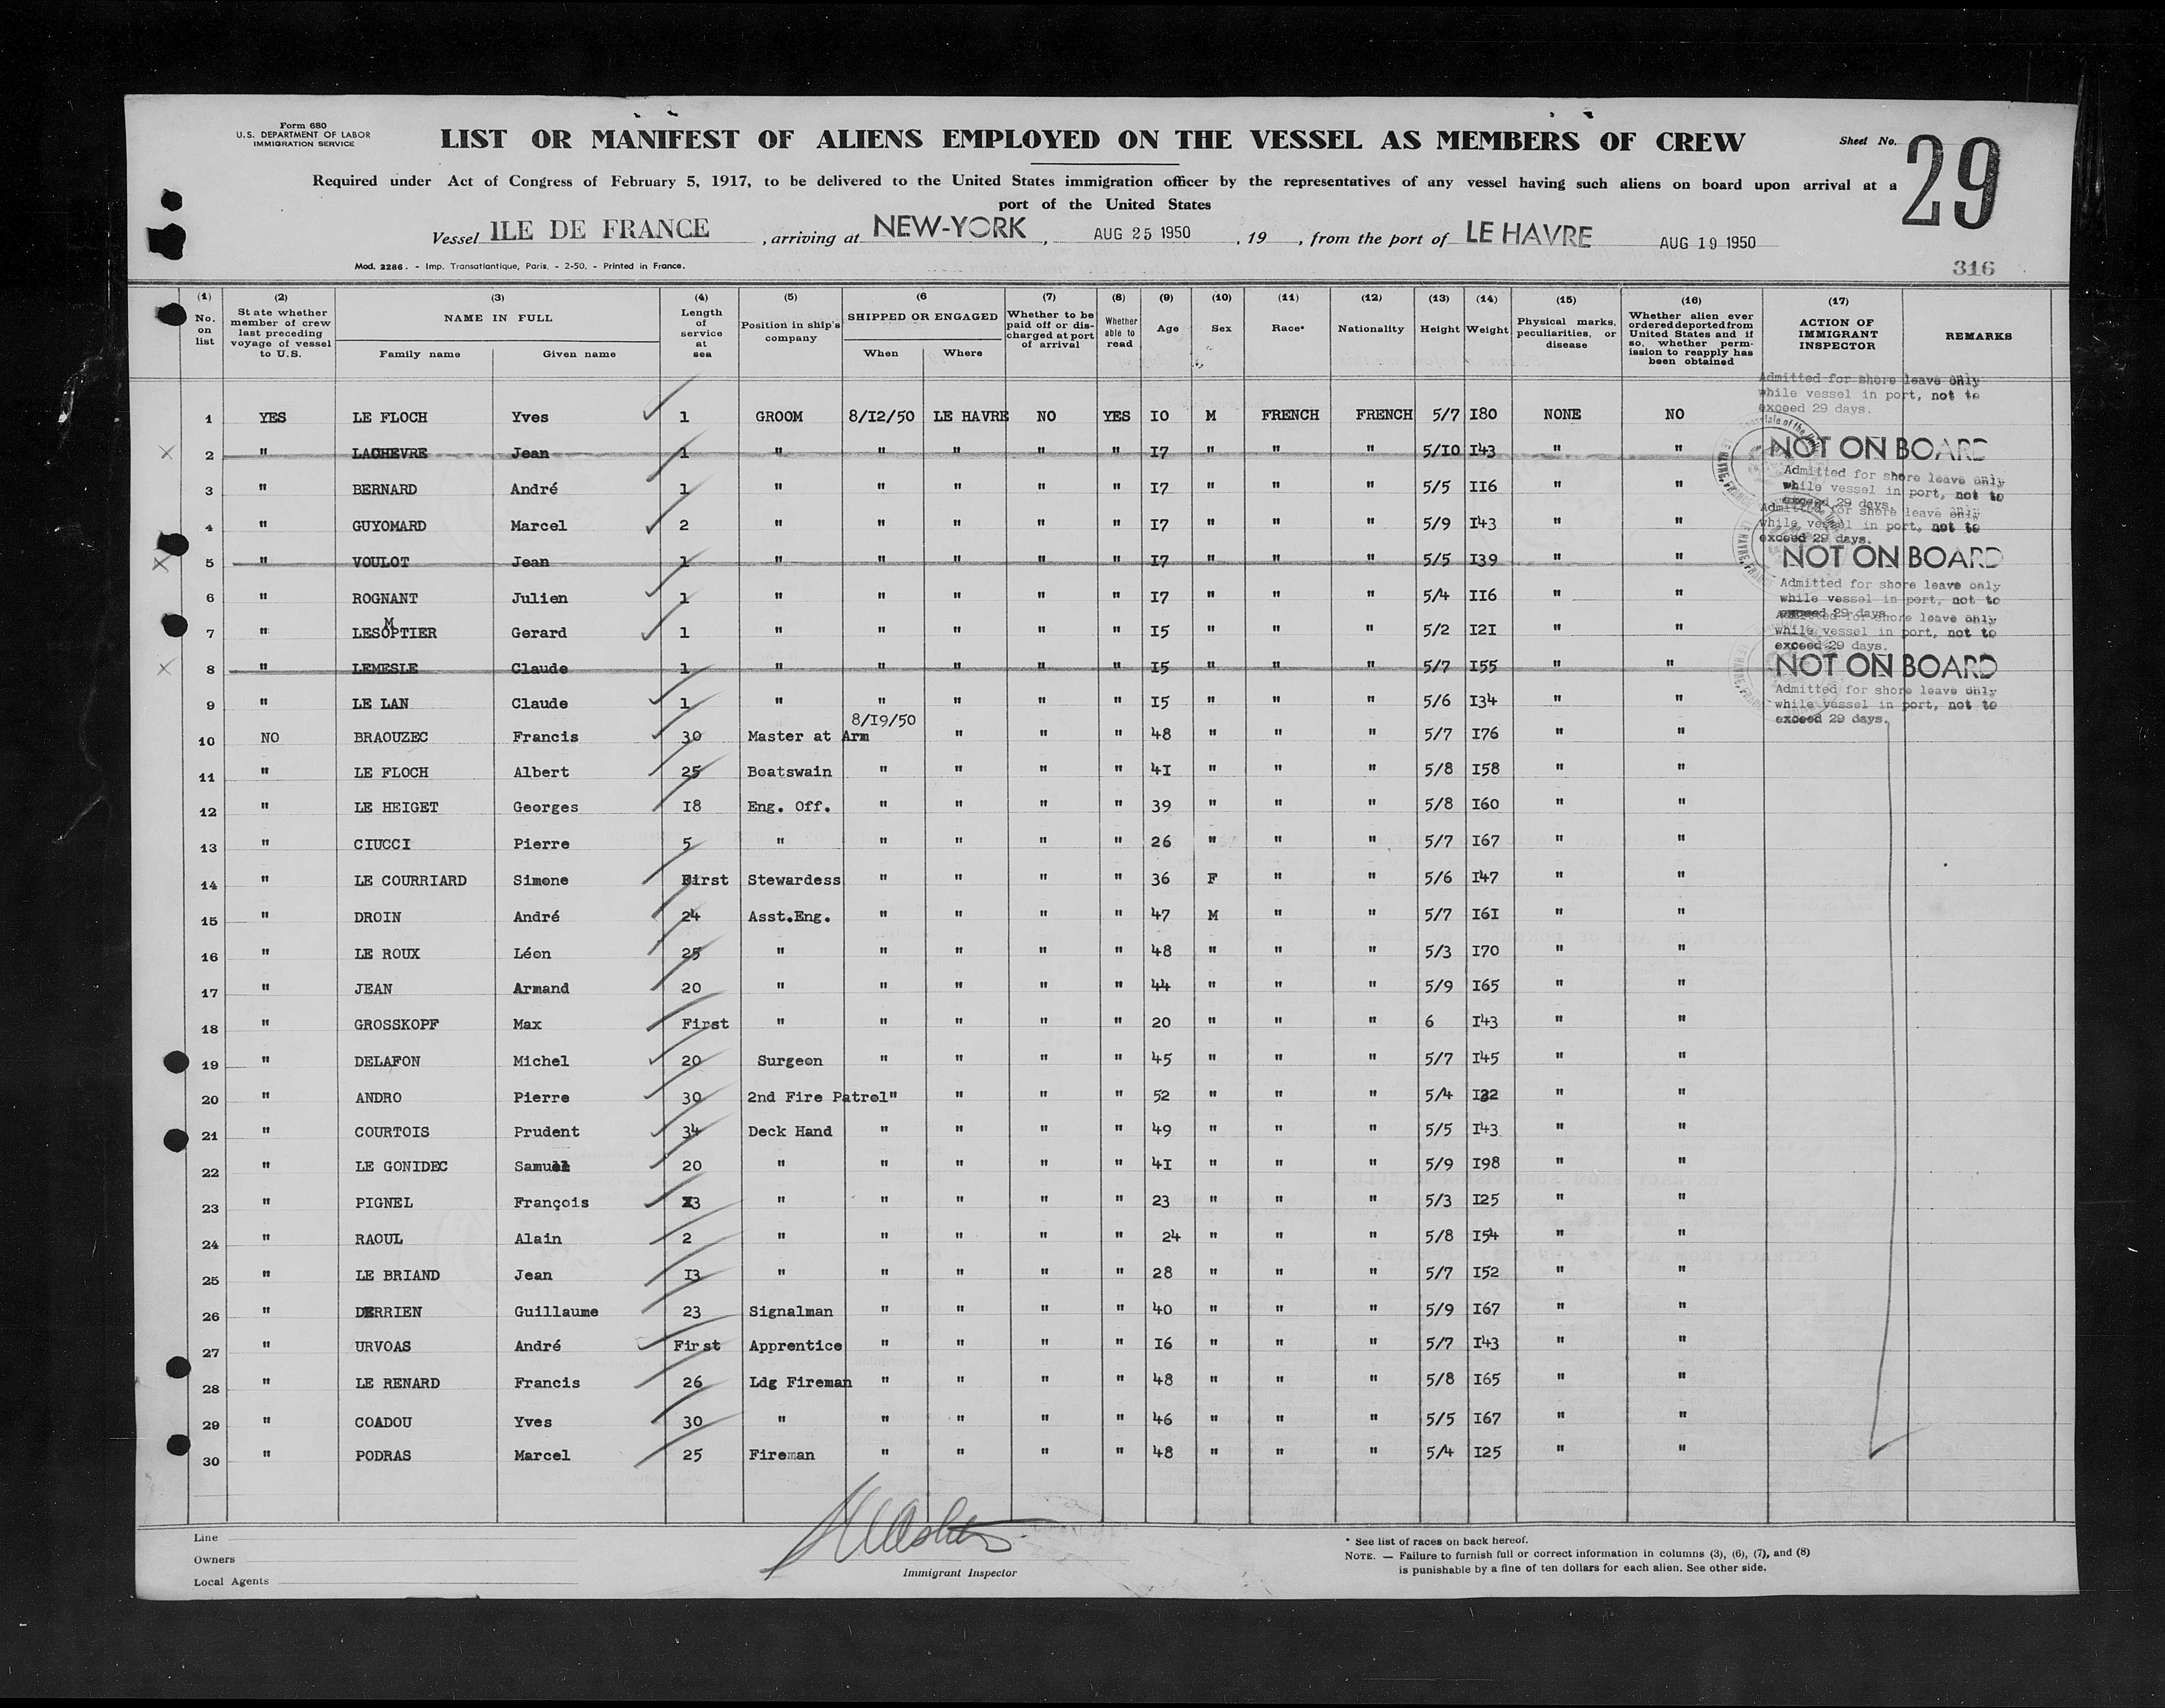 Form 680
U.S. DEPARTMENT OF LABOR
IMMIGRATION SERVICE
LIST OR MANIFEST OF ALIENS EMPLOYED ON THE VESSEL AS MEMBERS OF CREW
Sheet No. 29
Required under Act of Congress of February 5, 1917, to be delivered to the United States immigration officer by the representatives of any vessel having such aliens on board upon arrival at a
port of the United States
Vessel ILE DE FRANCE , arriving at NEW-YORK , AUG 25 1950 , 19 , from the port of LE HAVRE AUG 19 1950
Mod. 2286. - Imp. Transatlantique, Paris. - 2-50. - Printed in France.
316
(1) No. on list (2) State whether member of crew last preceding voyage of vessel to U.S. (3) NAME IN FULL Family name Given name (4) Length of service at sea (5) Position in ship's company (6 SHIPPED OR ENGAGED When Where (7) Whether to be paid off or discharged at port of arrival (8) Whether able to read (9) Age (10) Sex (11) Race* (12) Nationality (13) Height (14) Weight (15) Physical marks, peculiarities, or disease (16) Whether alien ever ordered deported from United States and if so, whether permission to reapply has been obtained (17) ACTION OF IMMIGRANT INSPECTOR REMARKS
1 YES LE FLOCH Yves 1 GROOM 8/12/50 LE HAVRE NO YES I0 M FRENCH FRENCH 5/7 I80 NONE NO Admitted for shore leave only while vessel in port, not to exceed 29 days.
2 " LACHEVRE Jean 1 " " " " " I7 " " " 5/I0 I43 " " NOT ON BOARD
3 " BERNARD André 1 " " " " " I7 " " " 5/5 II6 " " Admitted for shore leave only while vessel in port, not to exceed 29 days.
4 " GUYOMARD Marcel 2 " " " " " I7 " " " 5/9 I43 " " Admitted for shore leave only while vessel in port, not to exceed 29 days.
5 " VOULOT Jean 1 " " " " " I7 " " " 5/5 I39 " " NOT ON BOARD
6 " ROGNANT Julien 1 " " " " " I7 " " " 5/4 II6 " " Admitted for shore leave only while vessel in port, not to exceed 29 days.
7 " LESOMPTIER Gerard 1 " " " " " I5 " " " 5/2 I2I " " Admitted for shore leave only while vessel in port, not to exceed 29 days.
8 " LEMESLE Claude 1 " " " " " I5 " " " 5/7 I55 " " NOT ON BOARD
9 " LE LAN Claude 1 " " " " " I5 " " " 5/6 I34 " " Admitted for shore leave only while vessel in port, not to exceed 29 days.
10 NO BRAOUZEC Francis 30 Master at Arm 8/I9/50 " " " 48 " " " 5/7 I76 " "
11 " LE FLOCH Albert 25 Boatswain " " " " 4I " " " 5/8 I58 " "
12 " LE HEIGET Georges I8 Eng. Off. " " " " 39 " " " 5/8 I60 " "
13 " CIUCCI Pierre 5 " " " " " 26 " " " 5/7 I67 " "
14 " LE COURRIARD Simone First Stewardess " " " " 36 F " " 5/6 I47 " "
15 " DROIN André 24 Asst.Eng. " " " " 47 M " " 5/7 I6I " "
16 " LE ROUX Léon 25 " " " " " 48 " " " 5/3 I70 " "
17 " JEAN Armand 20 " " " " " 44 " " " 5/9 I65 " "
18 " GROSSKOPF Max First " " " " " 20 " " " 6 I43 " "
19 " DELAFON Michel 20 Surgeon " " " " 45 " " " 5/7 I45 " "
20 " ANDRO Pierre 30 2nd Fire Patrol" " " " 52 " " " 5/4 " "
21 " COURTOIS Prudent 34 Deck Hand " " " " 49 " " " 5/5 I43 " "
22 " LE GONIDEC Samuel 20 " " " " " 4I " " " 5/9 I98 " "
23 " PIGNEL François " " " " " 23 " " " 5/3 I25 " "
24 " RAOUL Alain 2 " " " " " 24 " " " 5/8 I54 " "
25 " LE BRIAND Jean I3 " " " " " 28 " " " 5/7 I52 " "
26 " DERRIEN Guillaume 23 Signalman " " " " 40 " " " 5/9 I67 " "
27 " URVOAS André First Apprentice " " " " I6 " " " 5/7 I43 " "
28 " LE RENARD Francis 26 Ldg Fireman " " " " 48 " " " 5/8 I65 " "
29 " COADOU Yves 30 " " " " " 46 " " " 5/5 I67 " "
30 " PODRAS Marcel 25 Fireman " " " " 48 " " " 5/4 I25 " "
Line
Owners
Local Agents
Immigrant Inspector
* See list of races on back hereof.
NOTE. — Failure to furnish full or correct information in columns (3), (6), (7), and (8)
is punishable by a fine of ten dollars for each alien. See other side.